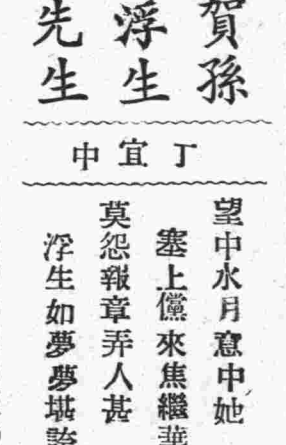 賀孫
浮生
先生
丁宜中
望中水月意中她
塞上儻來焦繼華
莫怨報章弄人甚
浮生如夢夢堪誇